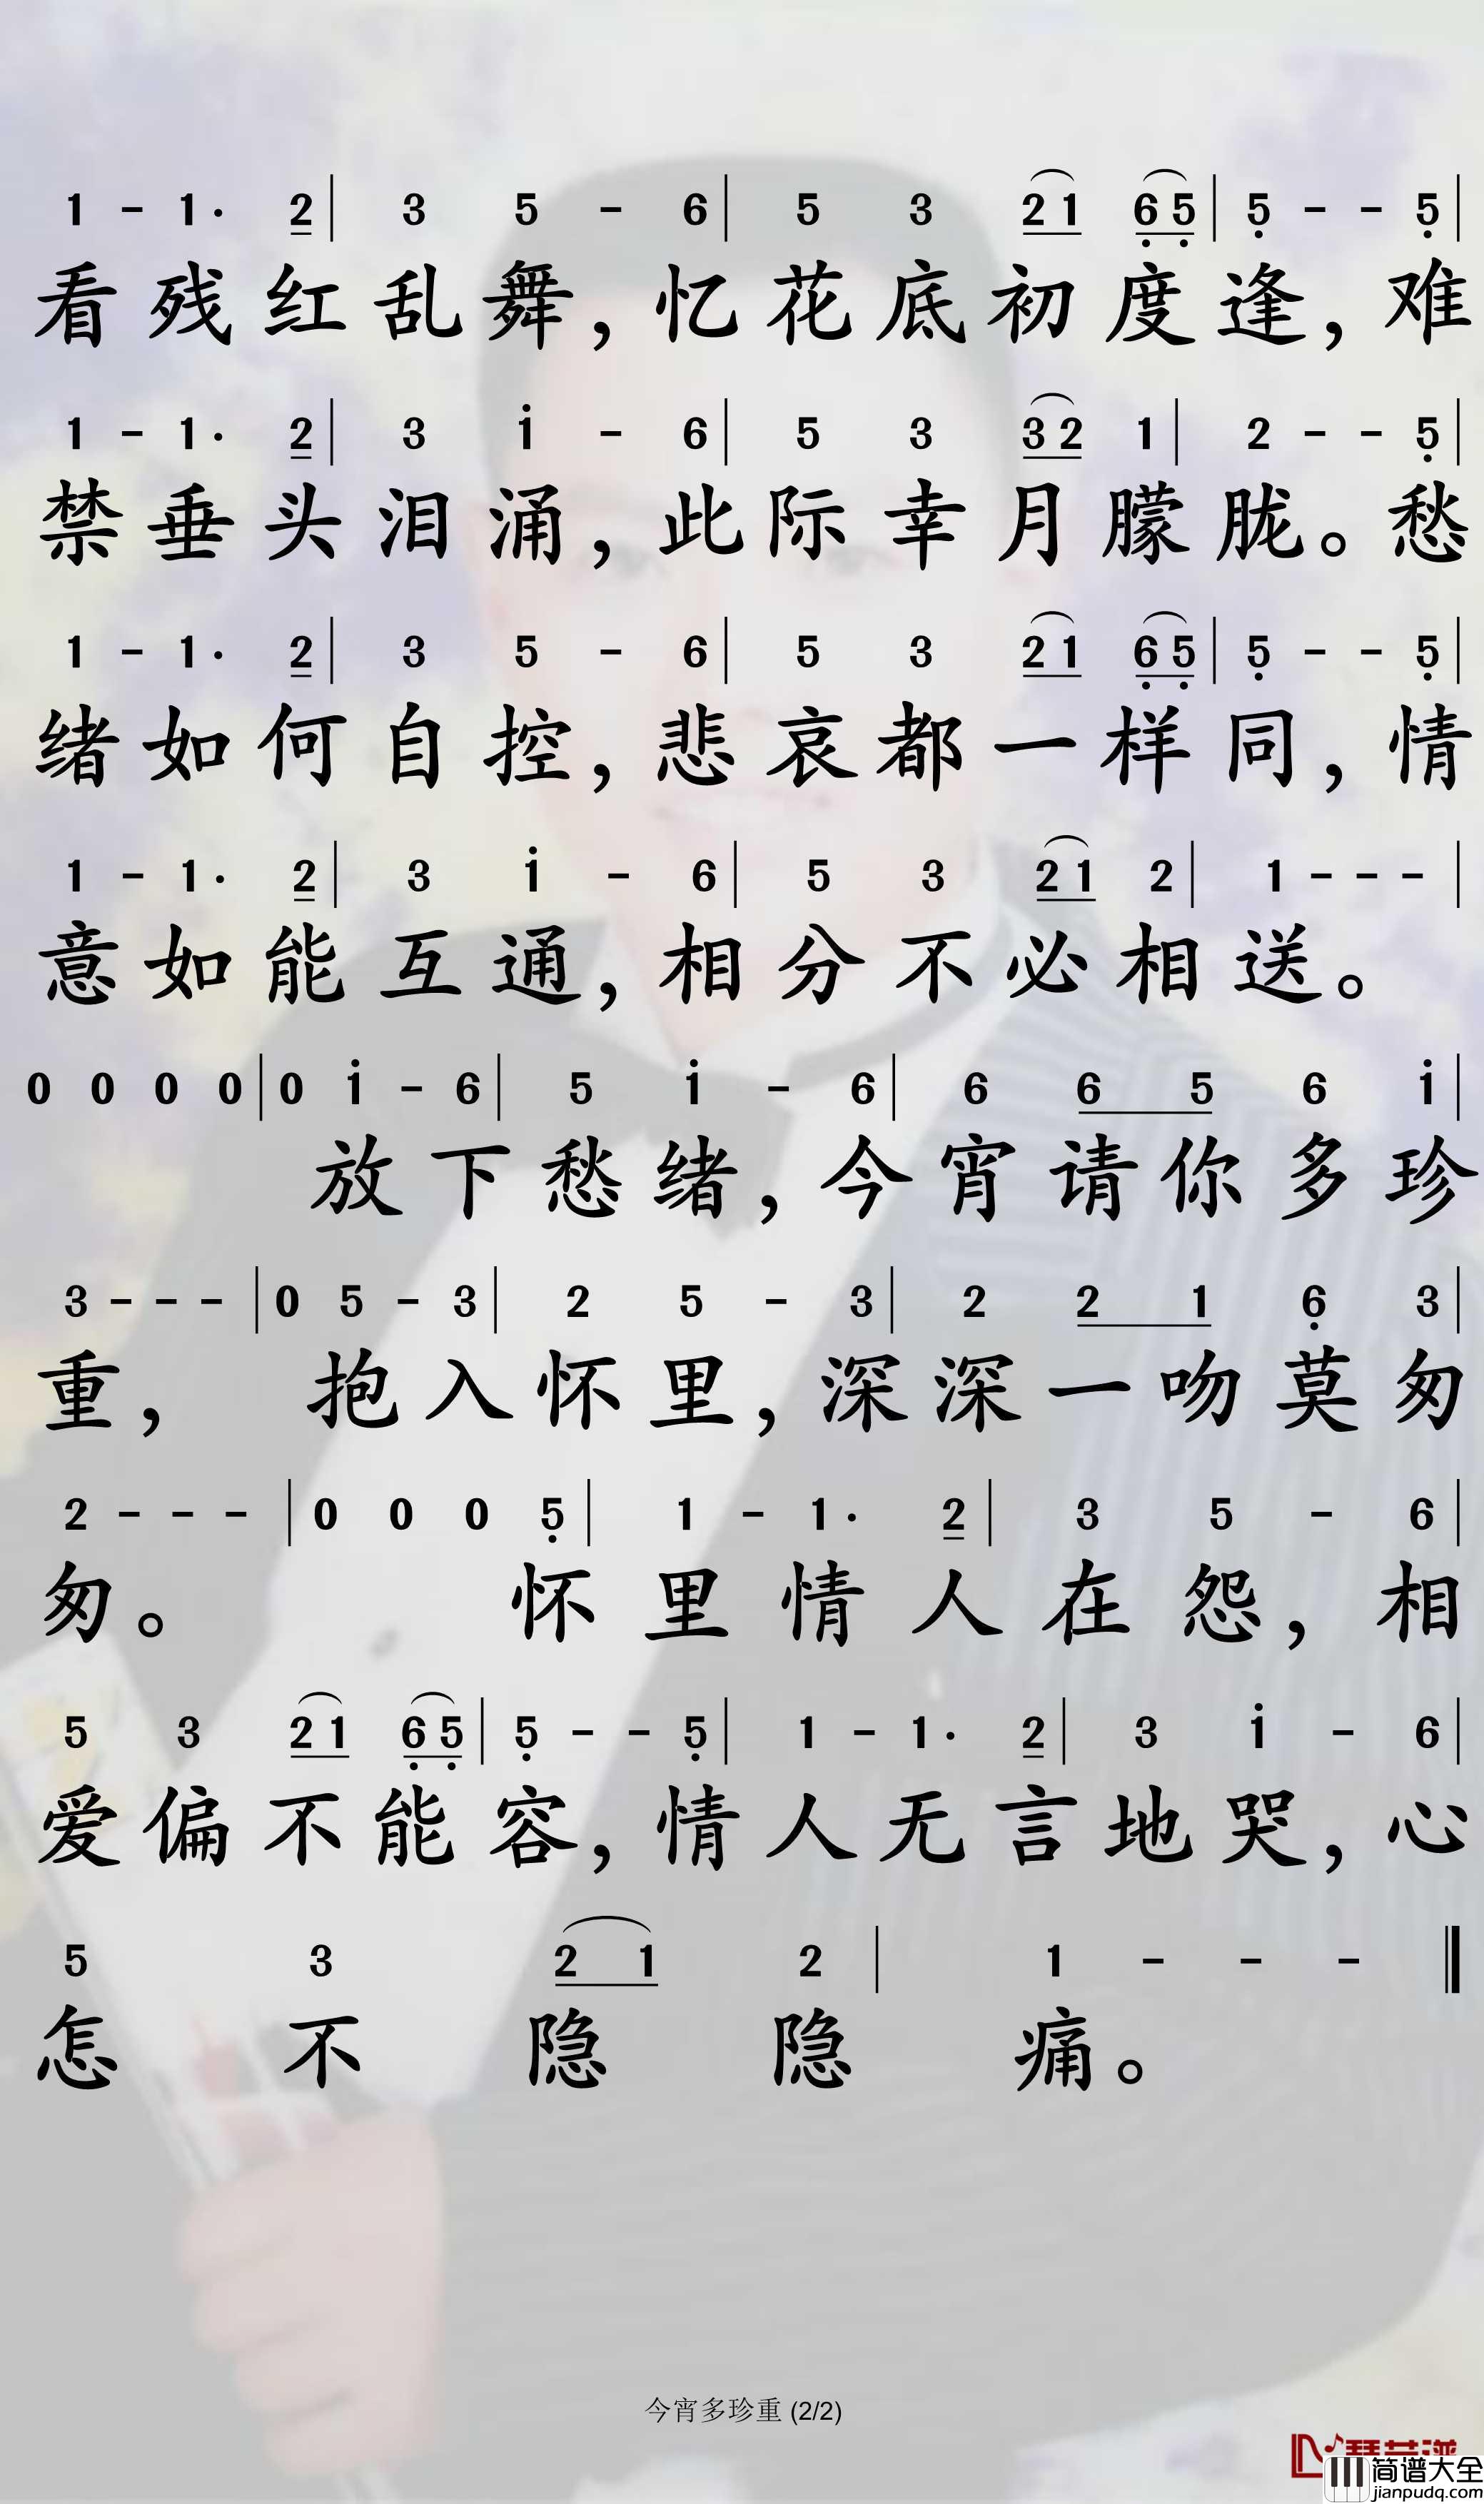 1 - 1· 2 | 3 5 - 6 | 5 3 2 1 6 5 | 5 - - 5 |
看残红乱舞，忆花底初度逢，难
1 - 1· 2 | 3 i - 6 | 5 3 3 2 1 | 2 - - 5 |
禁垂头泪涌，此际幸月朦胧。愁
1 - 1· 2 | 3 5 - 6 | 5 3 2 1 6 5 | 5 - - 5 |
绪如何自控，悲哀都一样同，情
1 - 1· 2 | 3 i - 6 | 5 3 2 1 2 | 1 - - - |
意如能互通，相分不必相送。
0 0 0 0 | 0 i - 6 | 5 i - 6 | 6 6 5 6 i |
放下愁绪，今宵请你多珍
3 - - - | 0 5 - 3 | 2 5 - 3 | 2 2 1 6 3 |
重，抱入怀里，深深一吻莫匆
2 - - - | 0 0 0 5 | 1 - 1· 2 | 3 5 - 6 |
匆。怀里情人在怨，相
5 3 2 1 6 5 | 5 - - 5 | 1 - 1· 2 | 3 i - 6 |
爱偏不能容，情人无言地哭，心
5 3 2 1 2 | 1 - - - ‖
怎不隐隐痛。
今宵多珍重 (2/2)
简谱大全
jianpudq.com